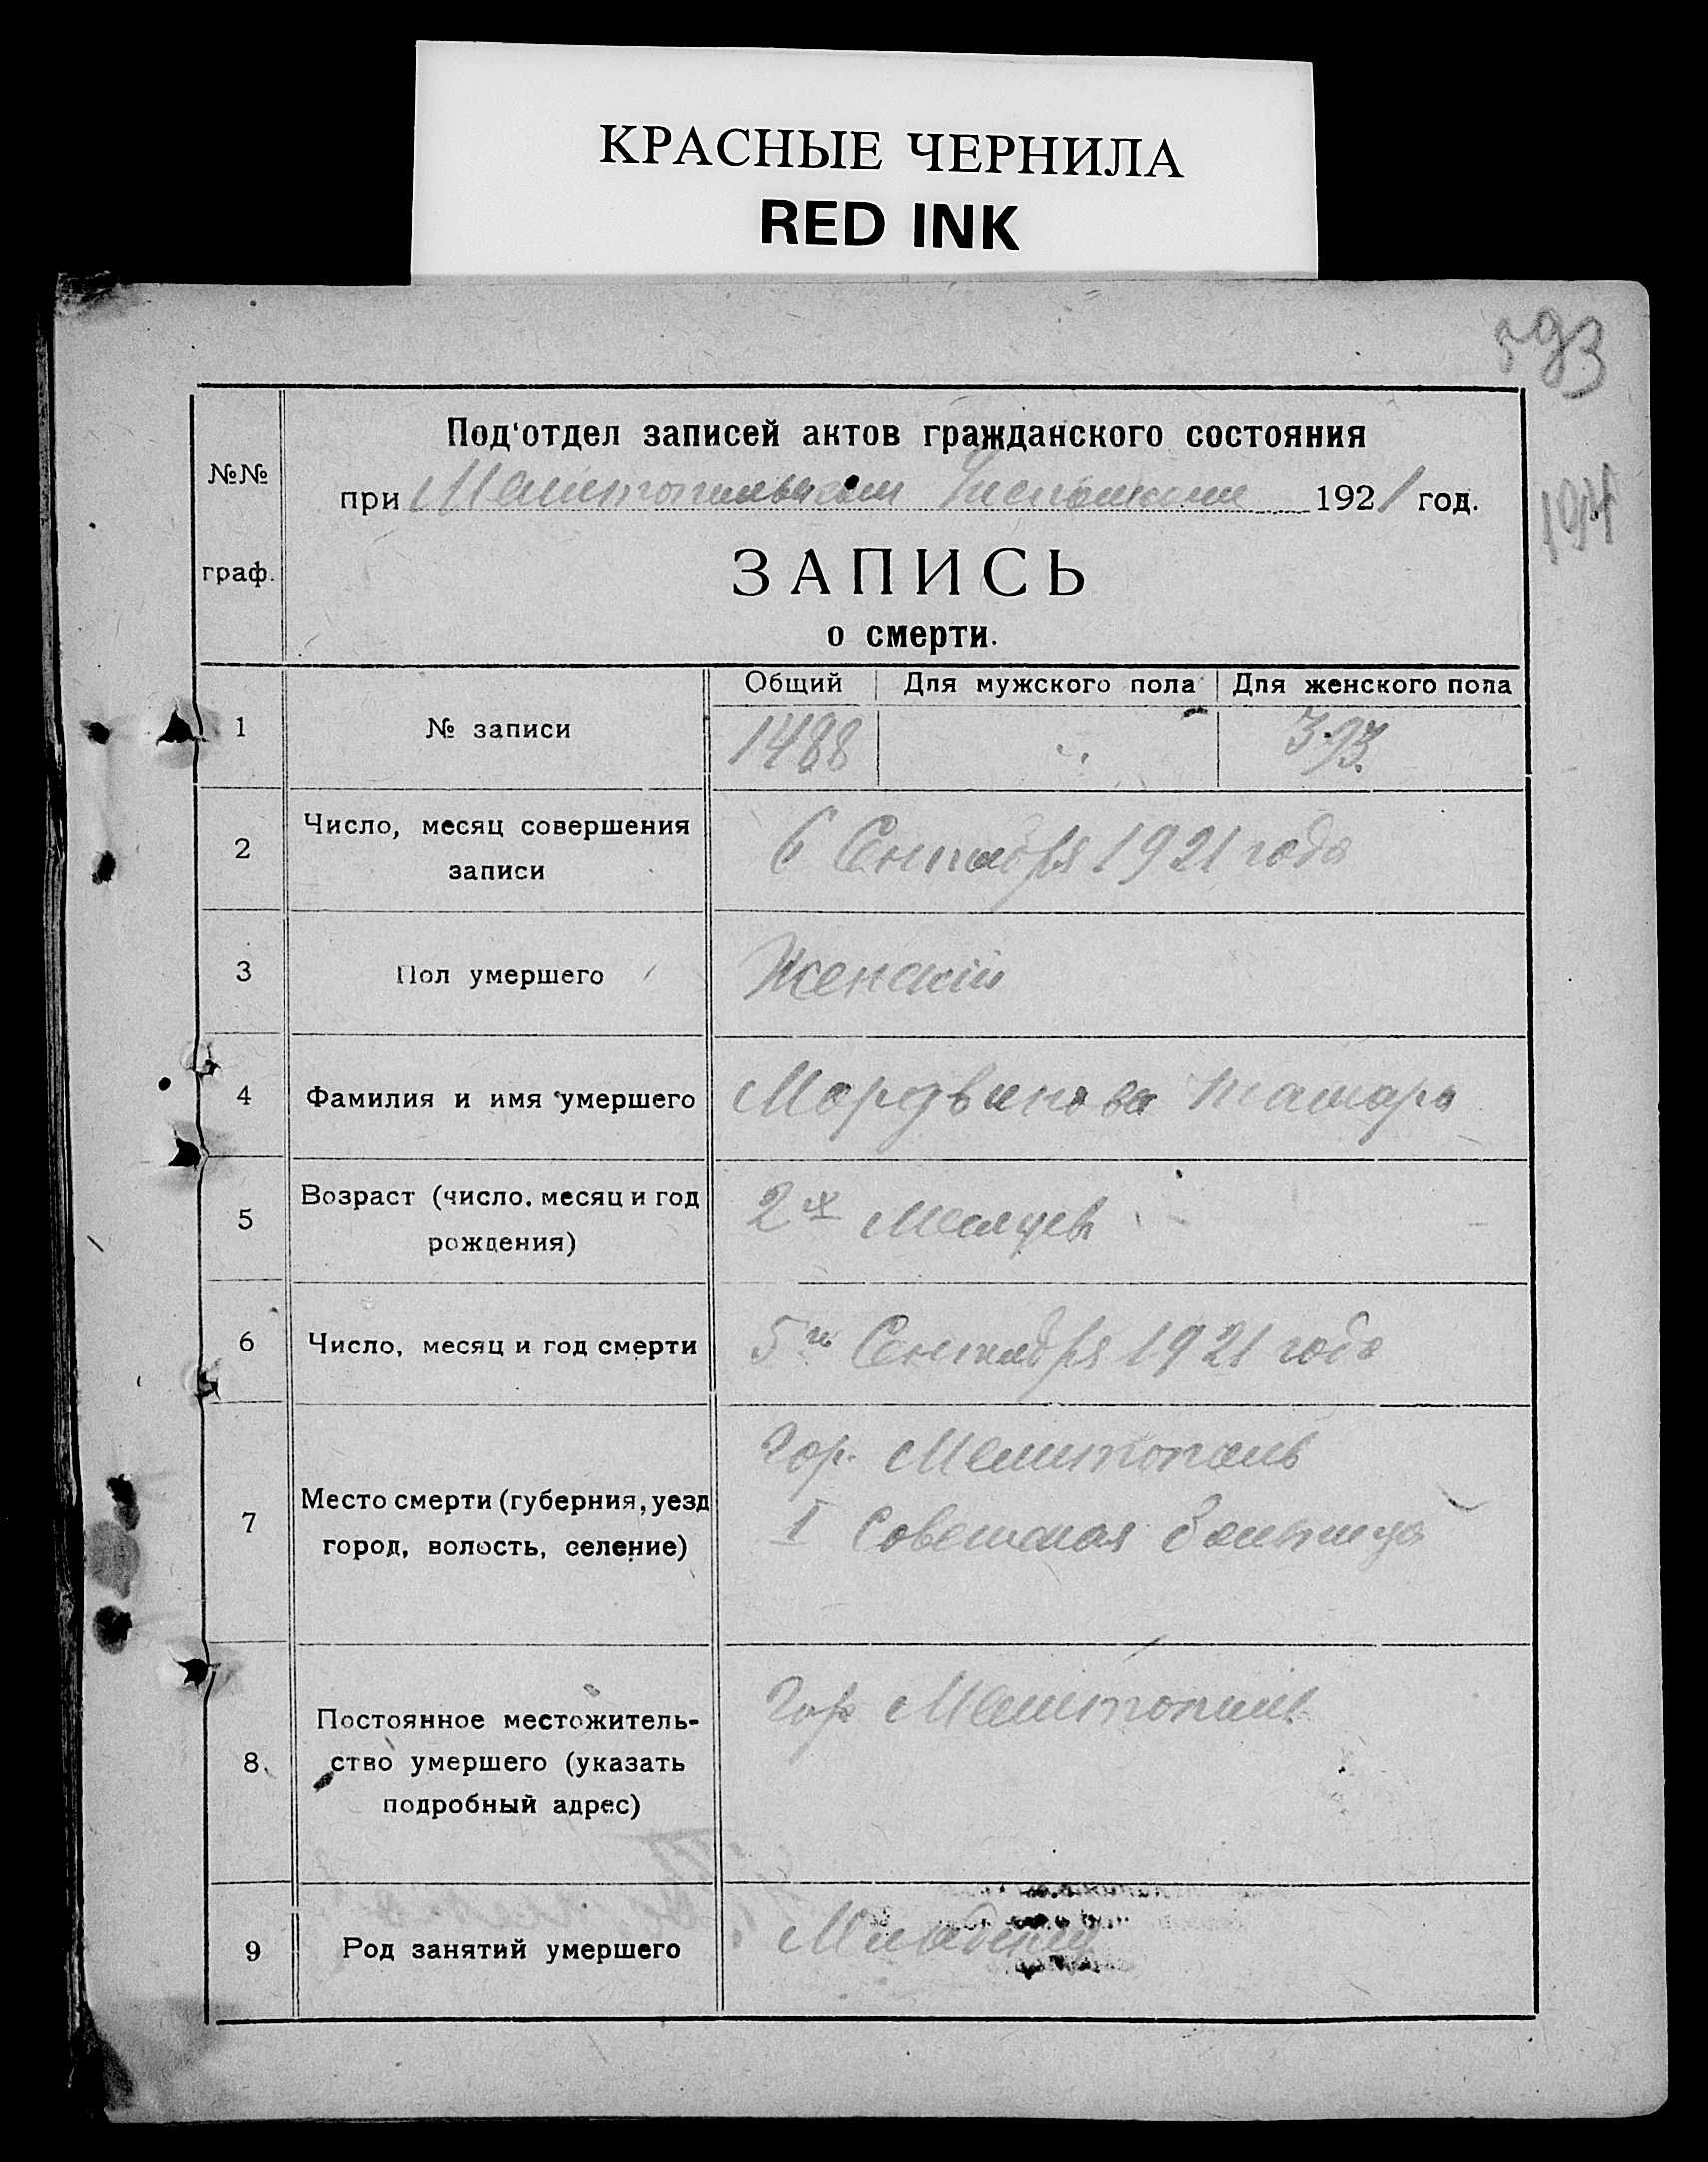 КРАСНЫЕ ЧЕРНИЛА
RED INK
593
Под'отдел записей актов гражданского состояния
№№
при Мелитопольском Исполкоме 1921 год.
граф.
ЗАПИСЬ
о смерти.
Общий Для мужского пола Для женского пола
1 № записи 1488 393.
2 Число, месяц совершения
записи
6 Сентября 1921 года
3 Пол умершего Женский
4 Фамилия и имя умершего Мордвинова Тамара
5 Возраст (число, месяц и год
рождения)
2х Месяцев
6 Число, месяц и год смерти 5го Сентября 1921 года
7 Место смерти (губерния, уезд
город, волость, селение)
Гор. Мелитополь
I Советская больница
8 Постоянное местожитель-
ство умершего (указать
подробный адрес)
Гор Мелитополь
9 Род занятий умершего Младенец